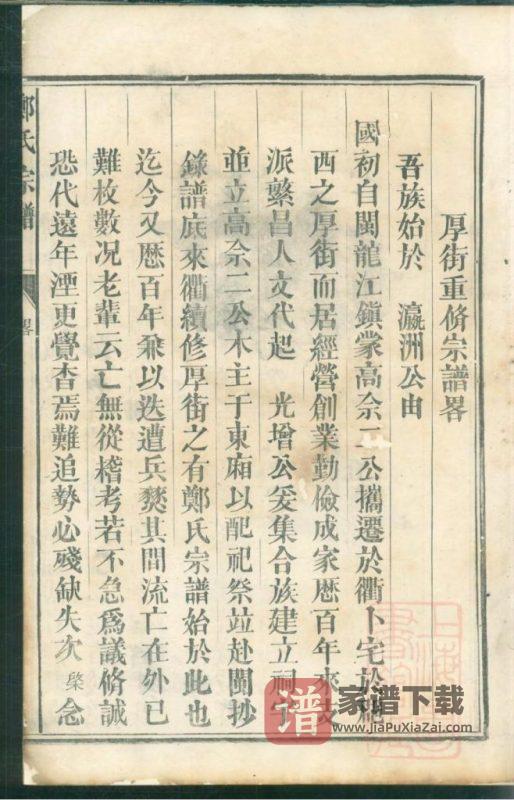 厚街重脩宗譜畧
吾族始於 瀛洲公由
國初自閩龍江鎮蒙高佘二公攜遷於衢卜宅於
西之厚街而居經營創業勤儉成家厯百年來支
派繁昌人文代起 光增公爰集合族建立祠宇
並立高佘二公木主于東廂以配祀祭竝赴閩抄
錄譜底來衢續修厚街之有鄭氏宗譜始於此也
迄今又厯百年兼以迭遭兵燹其間流亡在外已
難枚數况老輩云亡無從稽考若不急爲議脩誠
恐代遠年湮更覺杳焉難追勢必殘缺失次 棨 念
鄭氏宗譜
畧
譜
家谱下载
www.JiaPuXiaZai.com